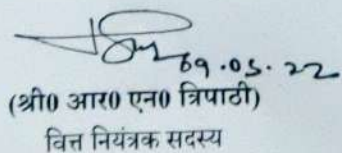 09.05.22
(श्री0 आर0 एन0 त्रिपाठी)
वित्त नियंत्रक सदस्य